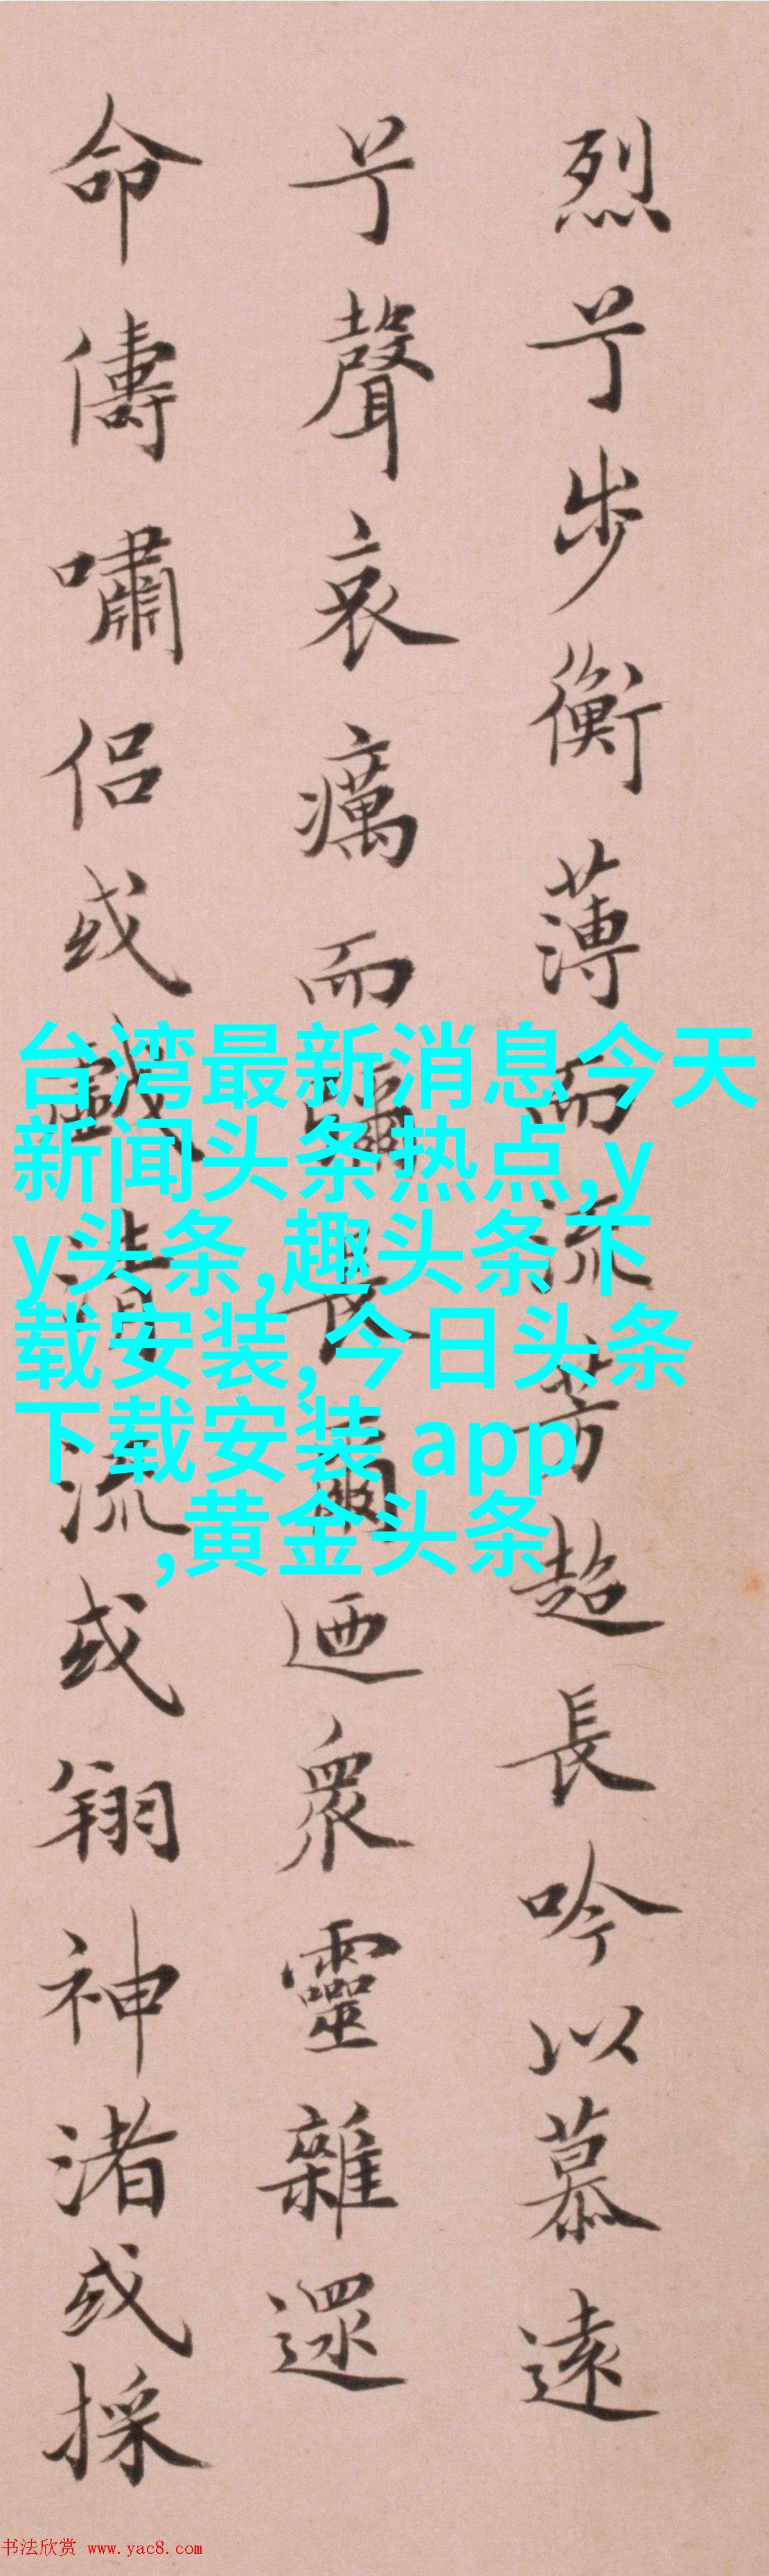 烈兮步衡薄而流芳超長吟以慕遠
兮聲哀癘而彌長爾迺眾靈雜遝
命儔嘯侶或戲清流或翔神渚或採
台湾最新消息今天
新闻头条热点,y
y头条,趣头条下
载安装,今日头条
下载安装 app
,黄金头条
书法欣赏 www.yac8.com